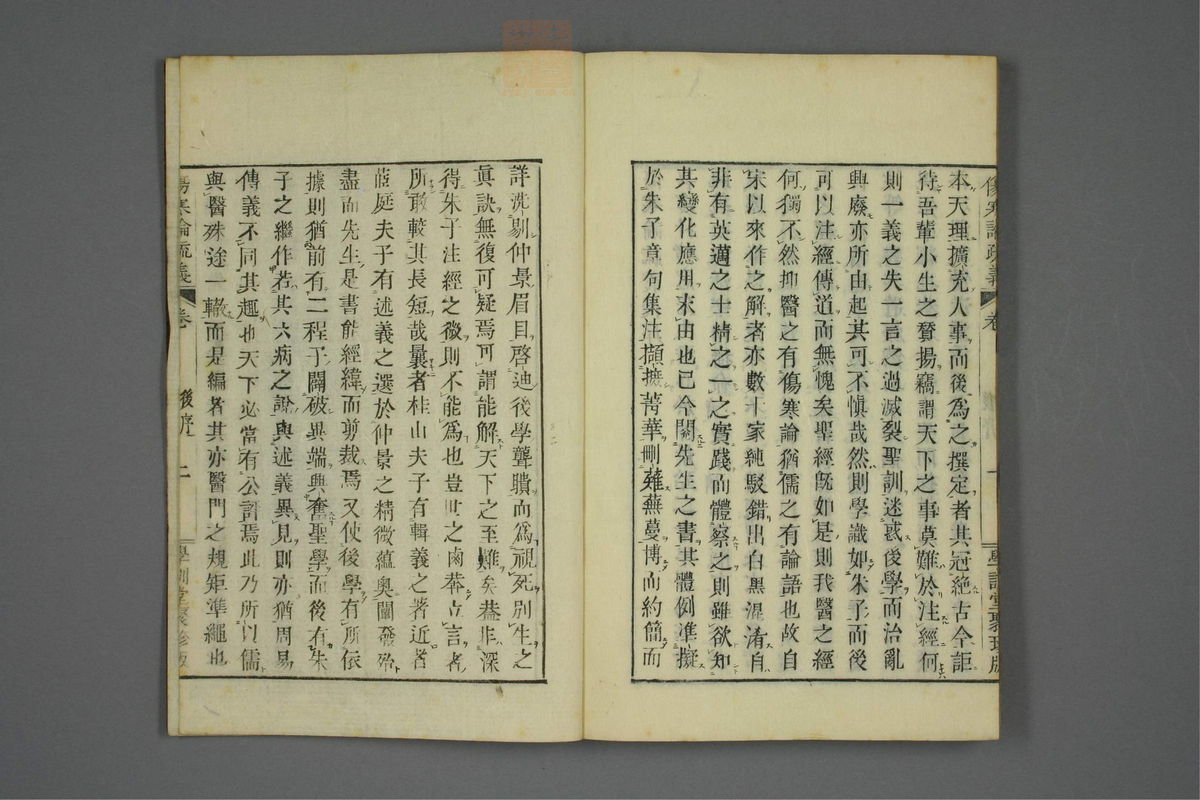 傷寒論疏義
卷
一
學訓堂聚珍版
本天理擴充人事而後爲之撰定者其冠絕古今詎
待吾輩小生之贊揚竊謂天下之事莫難於注經何
則一義之失一言之過滅裂聖訓迷惑後學而治亂
興廢亦所由起其可不愼哉然則學識如朱子而後
可以注經傳道而無愧矣聖經既如是則我醫之經
何獨不然抑醫之有傷寒論猶儒之有論語也故自
宋以來作之解者亦數十家純駁錯出白黑混淆自
非有英邁之士精之一之實踐而體察之則雖欲知
其變化應用末由也已今閱先生之書其體例準擬
於朱子章句集注擷摭菁華刪薙蕪蔓博而約簡而
詳洗剔仲景眉目啓迪後學聾聵而爲視死別生之
眞訣無復可疑焉可謂能解天下之至難矣蓋非深
得朱子注經之微則不能爲也豈世之鹵莽立言者
所敢較其長短哉曩者桂山夫子有輯義之著近者
茝庭夫子有述義之選於仲景之精微蘊奧闡發殆
盡而先生是書能經緯而剪裁焉又使後學有所依
據則猶前有二程子闢破異端興奮聖學而後有朱
子之繼作若其六病之說與述義異見則亦猶周易
傳義不同其趣也天下必當有公評焉此乃所以儒
與醫殊途一轍而是編者其亦醫門之規矩準繩也
傷寒論疏義
卷
後序
二
學訓堂聚珍版